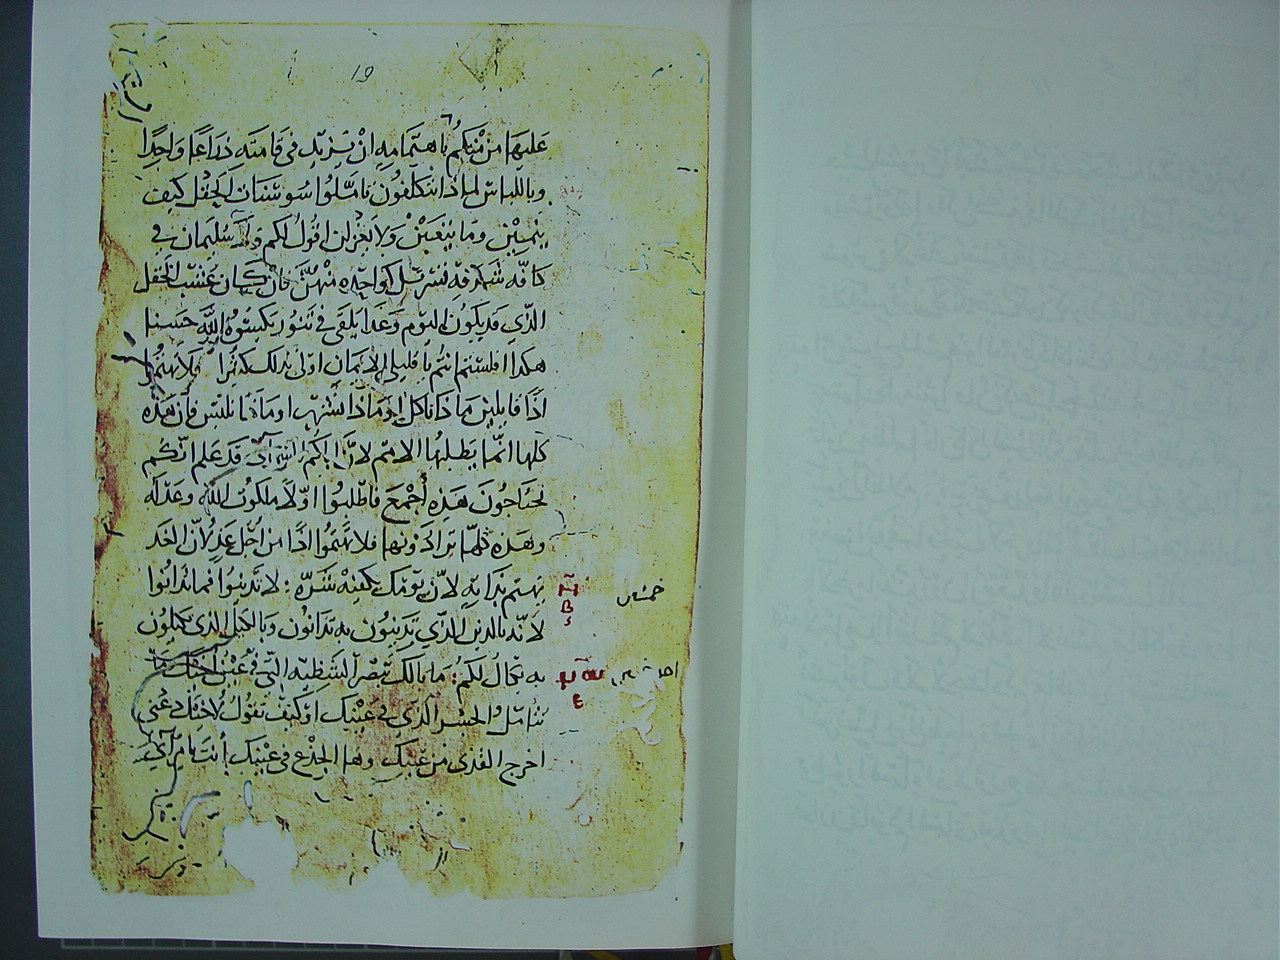 19
عليها من منكم باهتمامه ان يزيد في قامته ذراعا واحدا
وباللباس لماذا تتكلفون تاملوا سوسنات الحقل كيف
ينمين وما يتعبن ولا يغزلن اقول لكم ولا سليمان في
كافة شكر فه كواحده منهن فان كان عشب الحقل
الذي قد يكون اليوم وغدا يلقى في تنور يكسوه الله حسنا
هكذا افلستم انتم يا قليلي الايمان اولى بذلك كثيرا فلا تهتموا
اذا قايلين ماذا ناكل او ماذا نشرب او ماذا نلبس فان هذه
كلها انما يطلبها الامم لان اباكم قد علم انكم
تحتاجون هذه أجمع فاطلبوا اولا ملكوت الله وعدله
وهذه كلها تزادونها فلا تهتموا اذا من أجل غد لان الغد
يهتم بذاته لان يومك يكفيه شره : لا تدينوا فما تدانوا
خمسين
لانه بالدين الذي تدينون به تدانون وبالكيل الذي تكيلون
به يكال لكم : ما بالك تبصر الشظيه التي في عين اخيك
احد خمسين
تتامل الجسر الذي في عينيك او كيف تقول لاخيك دعني
اخرج القذى من عينك وهذا الجذع في عينيك أنت يا مرآي